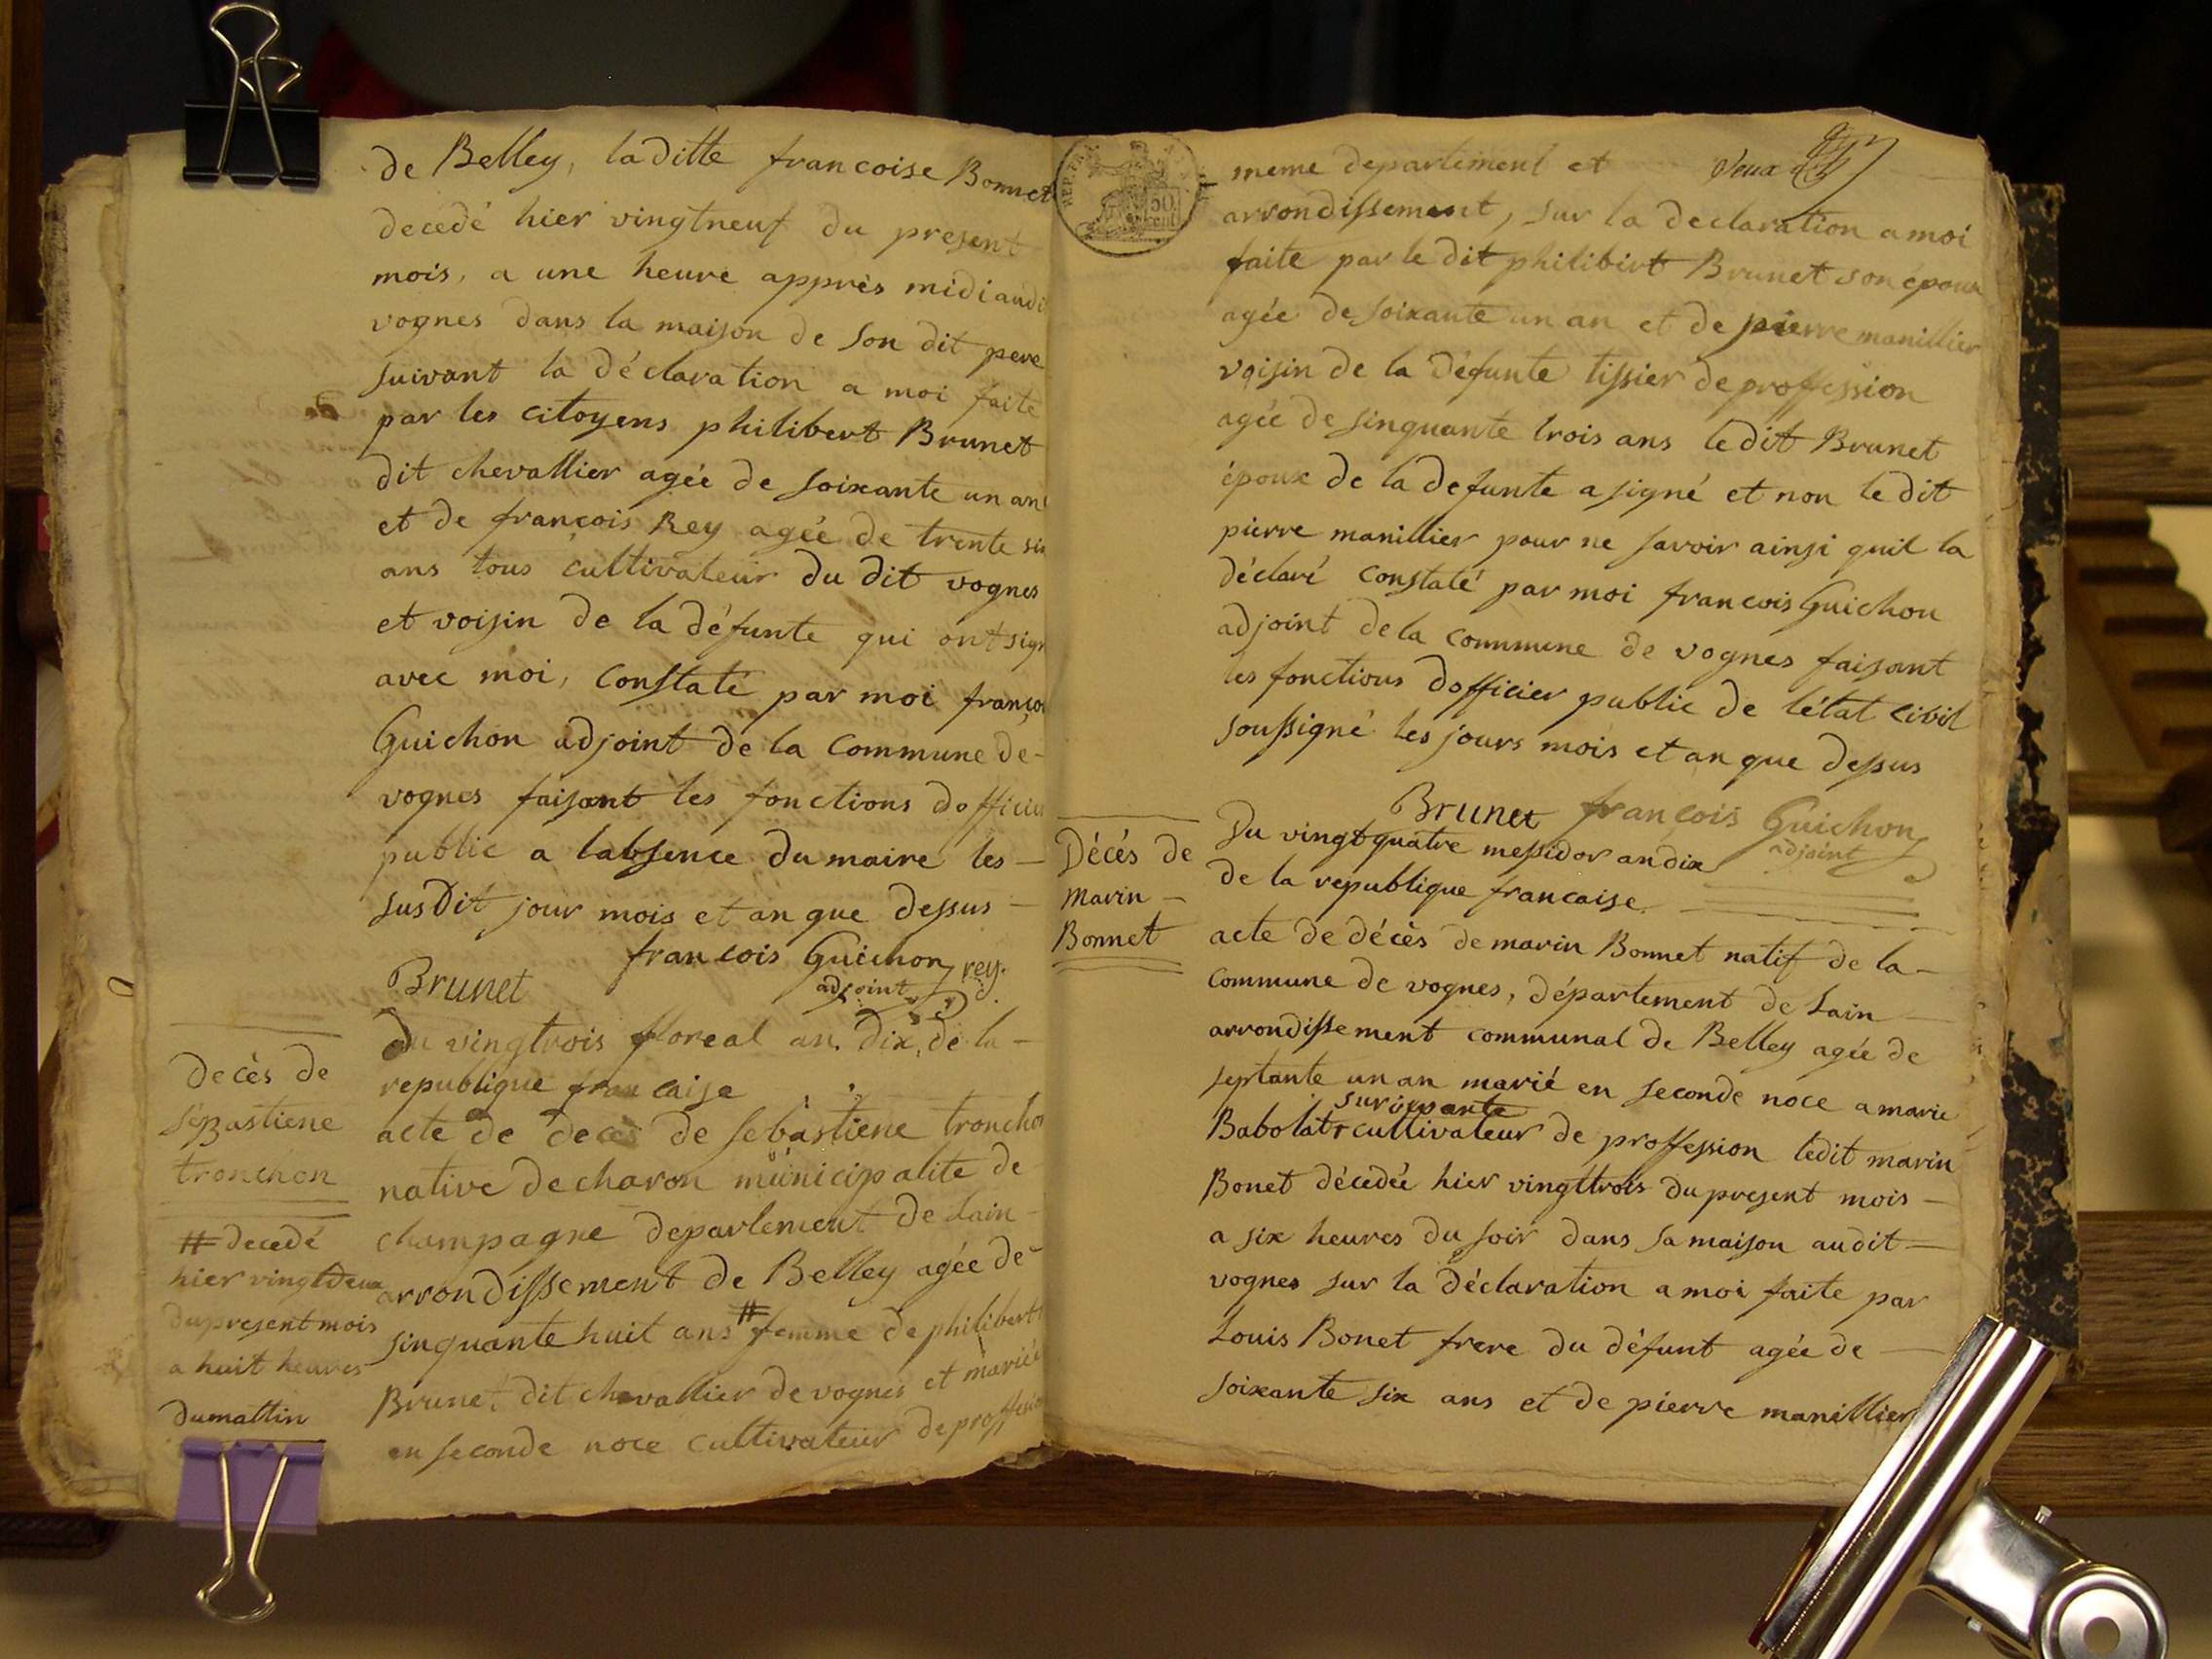 de Belley, laditte francoise Bonnet
decedé hier vingtneuf du present
mois, a une heure apprès midi audi
vognes dans la maison de son dit pere
suivant la déclaration a moi faite
par les citoyens philibert Brunet
dit chevallier agée de soixante un an
et de françois Rey agée de trente six
ans tous cultivateur du dit vognes
et voisin de la défunte qui ont sign
avec moi, constaté par moi françoi
Guichon adjoint de la commune de-
vognes faisant les fonctions dofficie
public a labsence du maire les -
susdit jour mois et an que dessus -
francois Guichon rey.
Brunet adjoint
du vingtrois floreal an dix, de la -
republique francaise
Decès de
sebastiene
tronchon
acte de deces de sebastiene tronchon
native de charon municipalite de
champagne departement de Lain -
arrondissement de Belley agée de -
sinquante huit ans # femme de philibert
Brunet dit chevallier de vognes et mariée
en seconde noce cultivateur de proffession
# decedé
hier vingtdeux
du present mois
a huit heures
du mattin
REP. FRA.
50
cent
meme departement et
Deux
arrondissement, sur la declaration a moi
faite par le dit philibert Brunet son epoux
agée de soixante un an et de pierre manillier
voisin de la défunte tissier de proffession
agée de sinquante trois ans ledit Brunet
époux de la defunte a signé et non le dit
pierre manillier pour ne savoir ainsi quil la
déclaré constaté par moi francois Guichon
adjoint de la commune de vognes faisant
les fonctions dofficier public de létat civil
soussigné les jours mois et an que dessus
Brunet françois Guichon
adjoint
Du vingtquatre messidor an dix
de la republique francaise
Décés de
Marin -
Bonnet
acte de décès de marin Bonnet natif de la -
commune de vognes, département de Lain -
arrondissement communal de Belley agée de
septante un an marié en seconde noce a marie
survivante
Babolat + cultivateur de proffession ledit marin
Bonet décedée hier vingttrois du present mois -
a six heures du soir dans sa maison audit -
vognes sur la déclaration a moi faite par
Louis Bonet frere du défunt agée de -
soixante six ans et de pierre manillier